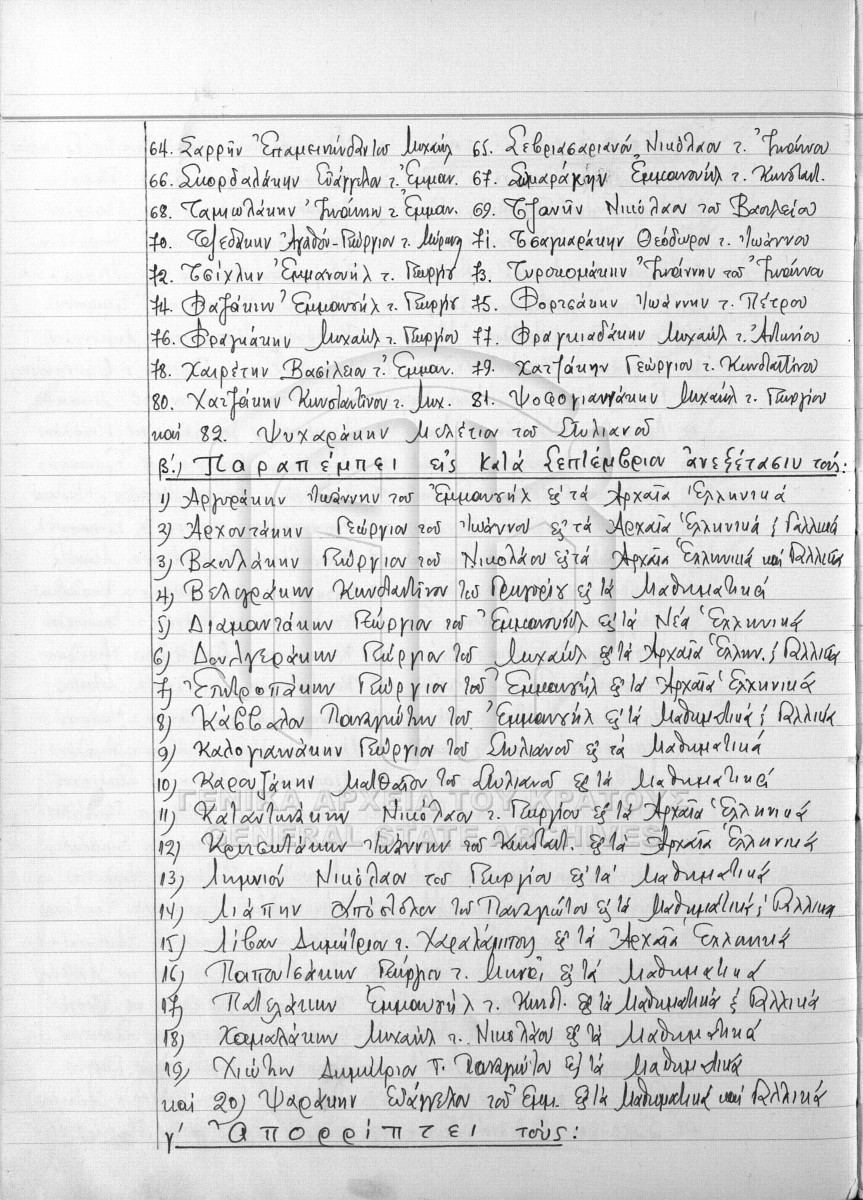 64. Σαρρῆν Ἐπαμεινώνδαν τοῦ Μιχαήλ 65. Σεβριασαριανόν Νικόλαον τ. Ἰωάννου
66. Σκορδαλάκην Εὐάγγελον τ. Ἐμμαν. 67. Σμαράκην Ἐμμανουήλ τ. Κωνσταντ.
68. Ταμιωλάκην Ἰωάννην τ. Ἐμμαν. 69. Τζανῆν Νικόλαον τοῦ Βασιλείου
70. Τζεδάκην Ἀγαθόν-Γεώργιον τ. Μύρωνος 71. Τσαγκαράκην Θεόδωρον τ. Ἰωάννου
72. Τσίχλην Ἐμμανουήλ τ. Γεωργίου 73. Τυροκομάκην Ἰωάννην τοῦ Ἰωάννου
74. Φαζάκιν Ἐμμανουήλ τ. Γεωργίου 75. Φορτσάκην Ἰωάννην τ. Πέτρου
76. Φραγκάκην Μιχαήλ τ. Γεωργίου 77. Φραγκιαδάκην Μιχαήλ τ. Ἀντωνίου
78. Χαιρέτην Βασίλειον τ. Ἐμμαν. 79. Χατζάκην Γεώργιον τ. Κωνσταντίνου
80. Χατζάκην Κωνσταντῖνον τ. Μιχ. 81. Ψοφογιαννάκην Μιχαήλ τ. Γεωργίου
καί 82. Ψυχαράκην Μελέτιον τοῦ Στυλιανοῦ
β΄) Παραπέμπει εἰς κατά Σεπτέμβριον ἀνεξέτασιν τούς:
1) Ἀργυράκην Ἰωάννην τοῦ Ἐμμανουήλ εἰς τά Ἀρχαῖα Ἑλληνικά
2) Ἀρχοντάκην Γεώργιον τοῦ Ἰωάννου εἰς τά Ἀρχαῖα Ἑλληνικά & Γαλλικά
3) Βασιλάκην Γεώργιον τοῦ Νικολάου εἰς τά Ἀρχαῖα Ἑλληνικά καί Γαλλικά
4) Βελεγράκην Κωνσταντῖνον τοῦ Γρηγορίου εἰς τά Μαθηματικά
5) Διαμαντάκην Γεώργιον τοῦ Ἐμμανουήλ εἰς τά Νέα Ἑλληνικά
6) Δουλγεράκην Γεώργιον τοῦ Μιχαήλ εἰς τά Ἀρχαῖα Ἑλλην. & Γαλλικά
7) Ἐπιτροπάκην Γεώργιον τοῦ Ἐμμανουήλ εἰς τά Ἀρχαῖα Ἑλληνικά
8) Κάββαλον Παναγιώτην τοῦ Ἐμμανουήλ εἰς τά Μαθηματικά & Γαλλικά
9) Καλογιαννάκην Γεώργιον τοῦ Στυλιανοῦ εἰς τά Μαθηματικά
10) Καρουζάκην Ματθαῖον τοῦ Στυλιανοῦ εἰς τά Μαθηματικά
ΓΕΝΙΚΑ ΑΡΧΕΙΑ ΤΟΥ ΚΡΑΤΟΥΣ
11) Κατάντωνάκην Νικόλαον τ. Γεωργίου εἰς τά Ἀρχαῖα Ἑλληνικά
GENERAL STATE ARCHIVES
12) Κριτσωτάκην Ἰωάννην τοῦ Κωνσταντ. εἰς τά Ἀρχαῖα Ἑλληνικά
13) Λημνιόν Νικόλαον τοῦ Γεωργίου εἰς τά Μαθηματικά
14) Λιάπην Ἀπόστολον τοῦ Παναγιώτου εἰς τά Μαθηματικά & Γαλλικά
15) Λίβαν Δημήτριον τ. Χαραλάμπους εἰς τά Ἀρχαῖα Ἑλληνικά
16) Παπουτσάκην Γεώργιον τ. Μηνᾶ εἰς τά Μαθηματικά
17) Πατελάκην Ἐμμανουήλ τ. Κωνστ. εἰς τά Μαθηματικά & Γαλλικά
18) Χαμαλάκην Μιχαήλ τ. Νικολάου εἰς τά Μαθηματικά
19) Χιώτην Δημήτριον τ. Παναγιώτου εἰς τά Μαθηματικά
καί 20) Ψαράκην Εὐάγγελον τοῦ Ἐμμ. εἰς τά Μαθηματικά καί Γαλλικά
γ΄ Ἀπορρίπτει τούς: